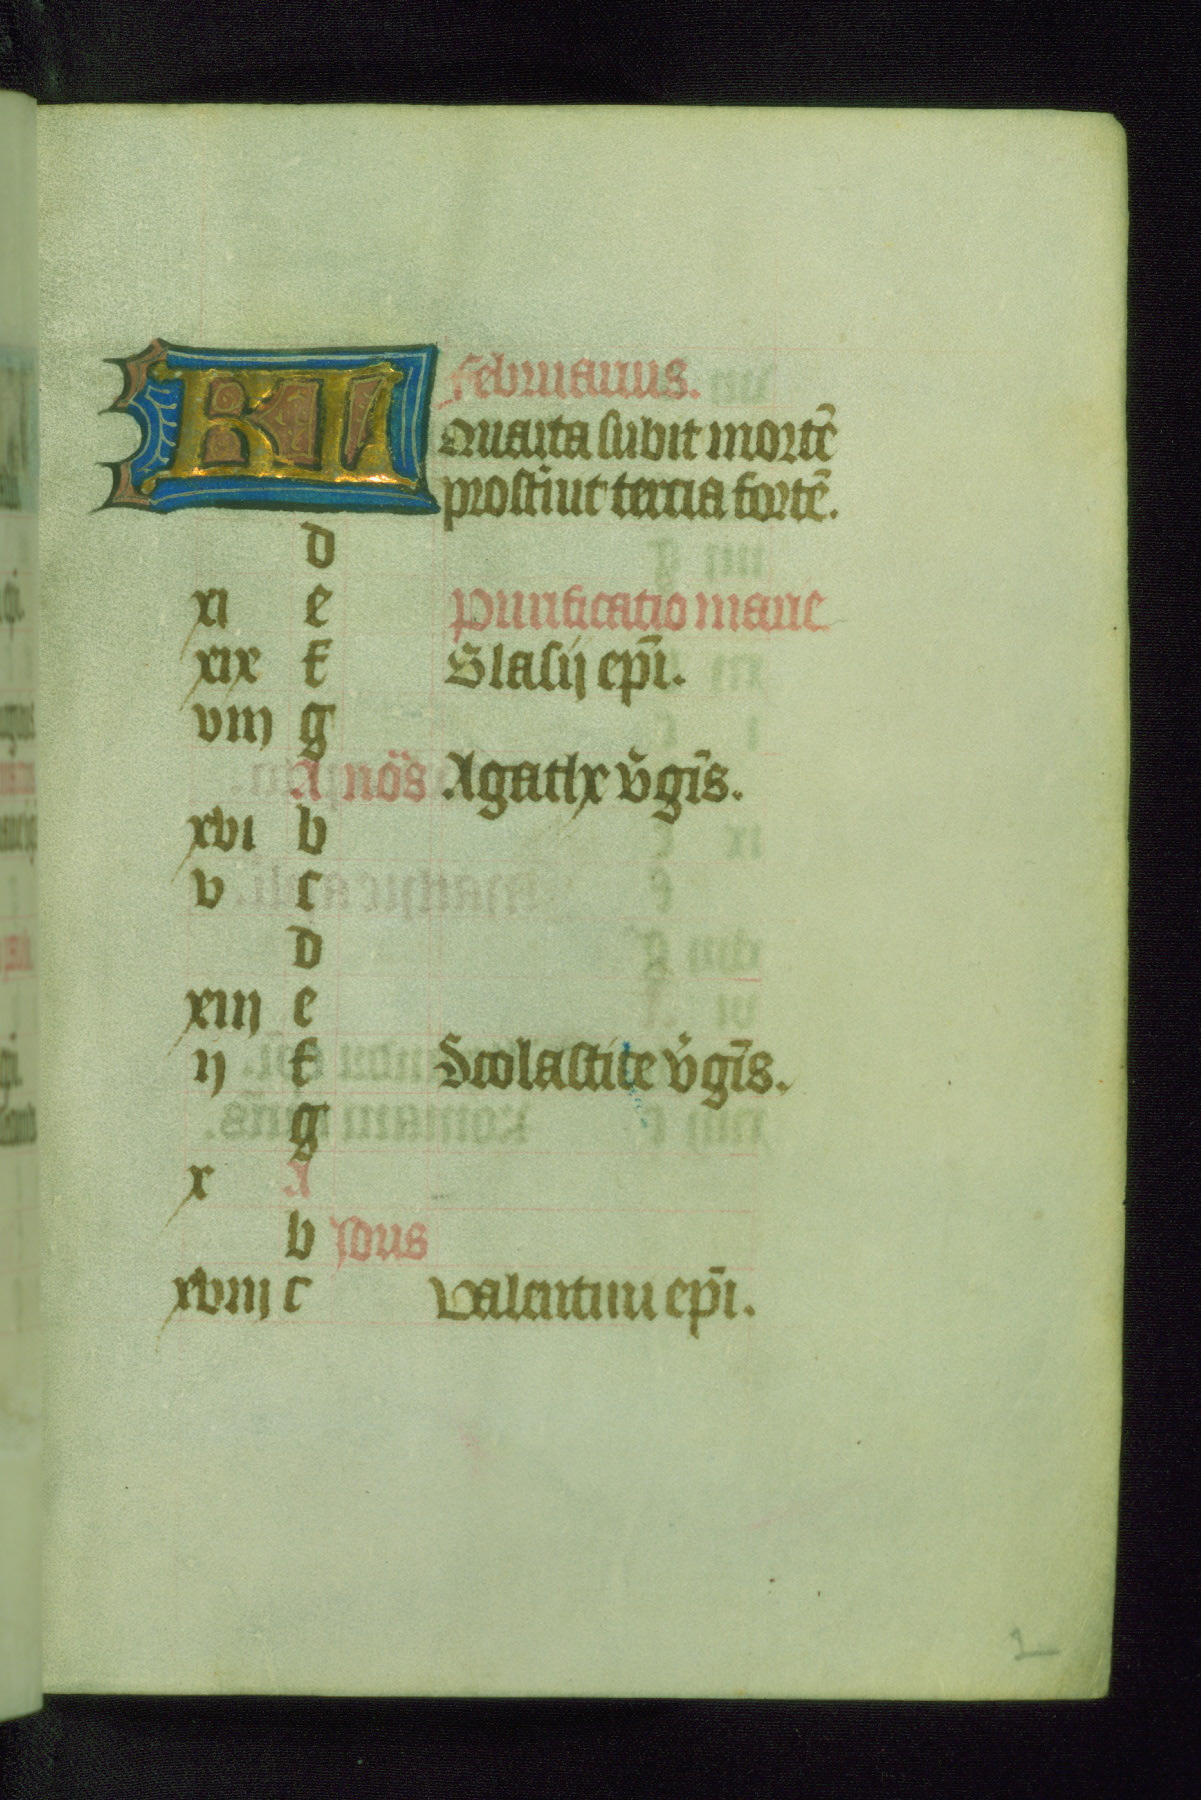 KL Februarius.
Quarta subit mortē
prosternit tercia fortē.
d
xi e Purificatio marie
xix f Blasij ep̄i.
viij g
A nōs Agathe v̄gīs.
xvi b
v c
d
xiij e
ij f Scolastice v̄gīs.
g
x A
b Idus
xviij c Valentini ep̄i.
2